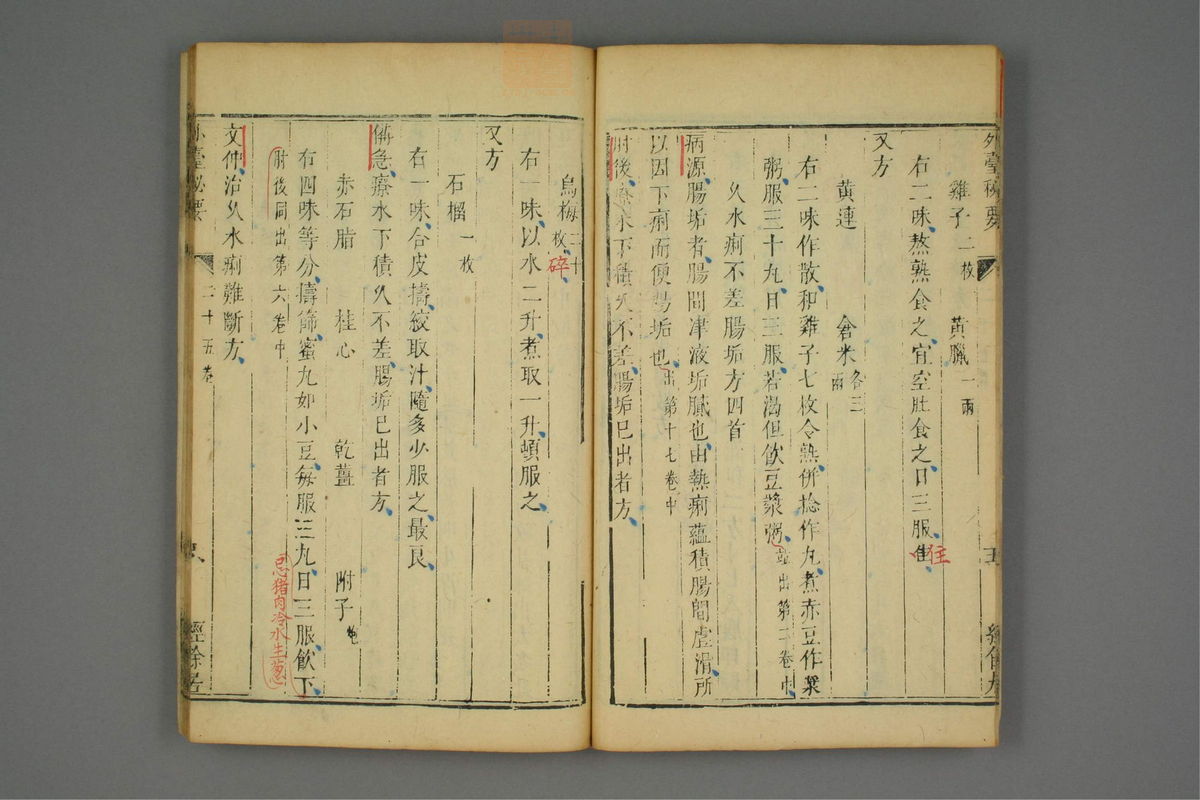 外臺秘要
雞子二枚 黃臘一兩
右二味熬熟食之宜空肚食之日三服佳
住
又方
黃連 倉米各三兩
右二味作散和雞子七枚令熟併捻作丸煮赤豆作漿
粥服三十丸日三服若渴但飲豆漿粥並出第二卷中
久水痢不差腸垢方四首
病源腸垢者腸間津液垢膩也由熱痢蘊積腸間虛滑所
以因下痢而便腸垢也出第十七卷中
肘後療水下積久不差腸垢已出者方
烏梅二十枚
碎
右一味以水二升煮取一升頓服之
又方
石榴一枚
右一味合皮擣絞取汁隨多少服之最良
備急療水下積久不差腸垢已出者方
赤石脂 桂心 乾薑 附子炮
右四味等分擣篩蜜丸如小豆每服三丸日三服飲下
肘後同出第六卷中
忌猪肉冷水生葱
文仲治久水痢難斷方
外臺秘要 二十五卷 經餘居